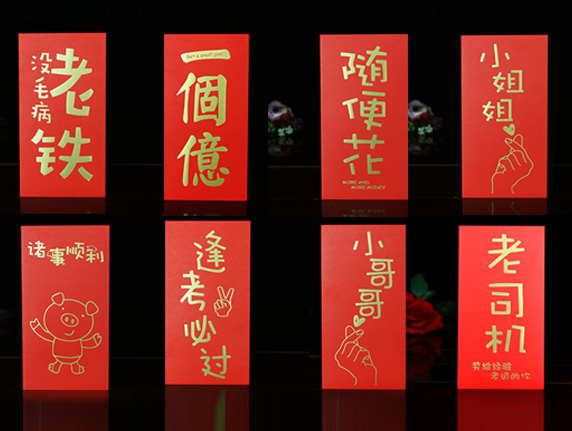 没毛病
老铁
Set a small goal
一個億
随便花
MORE AND
MORE MONEY
小姐姐
诸事顺利
逢考必过
小哥哥
老司机
奖给经验
老道的你